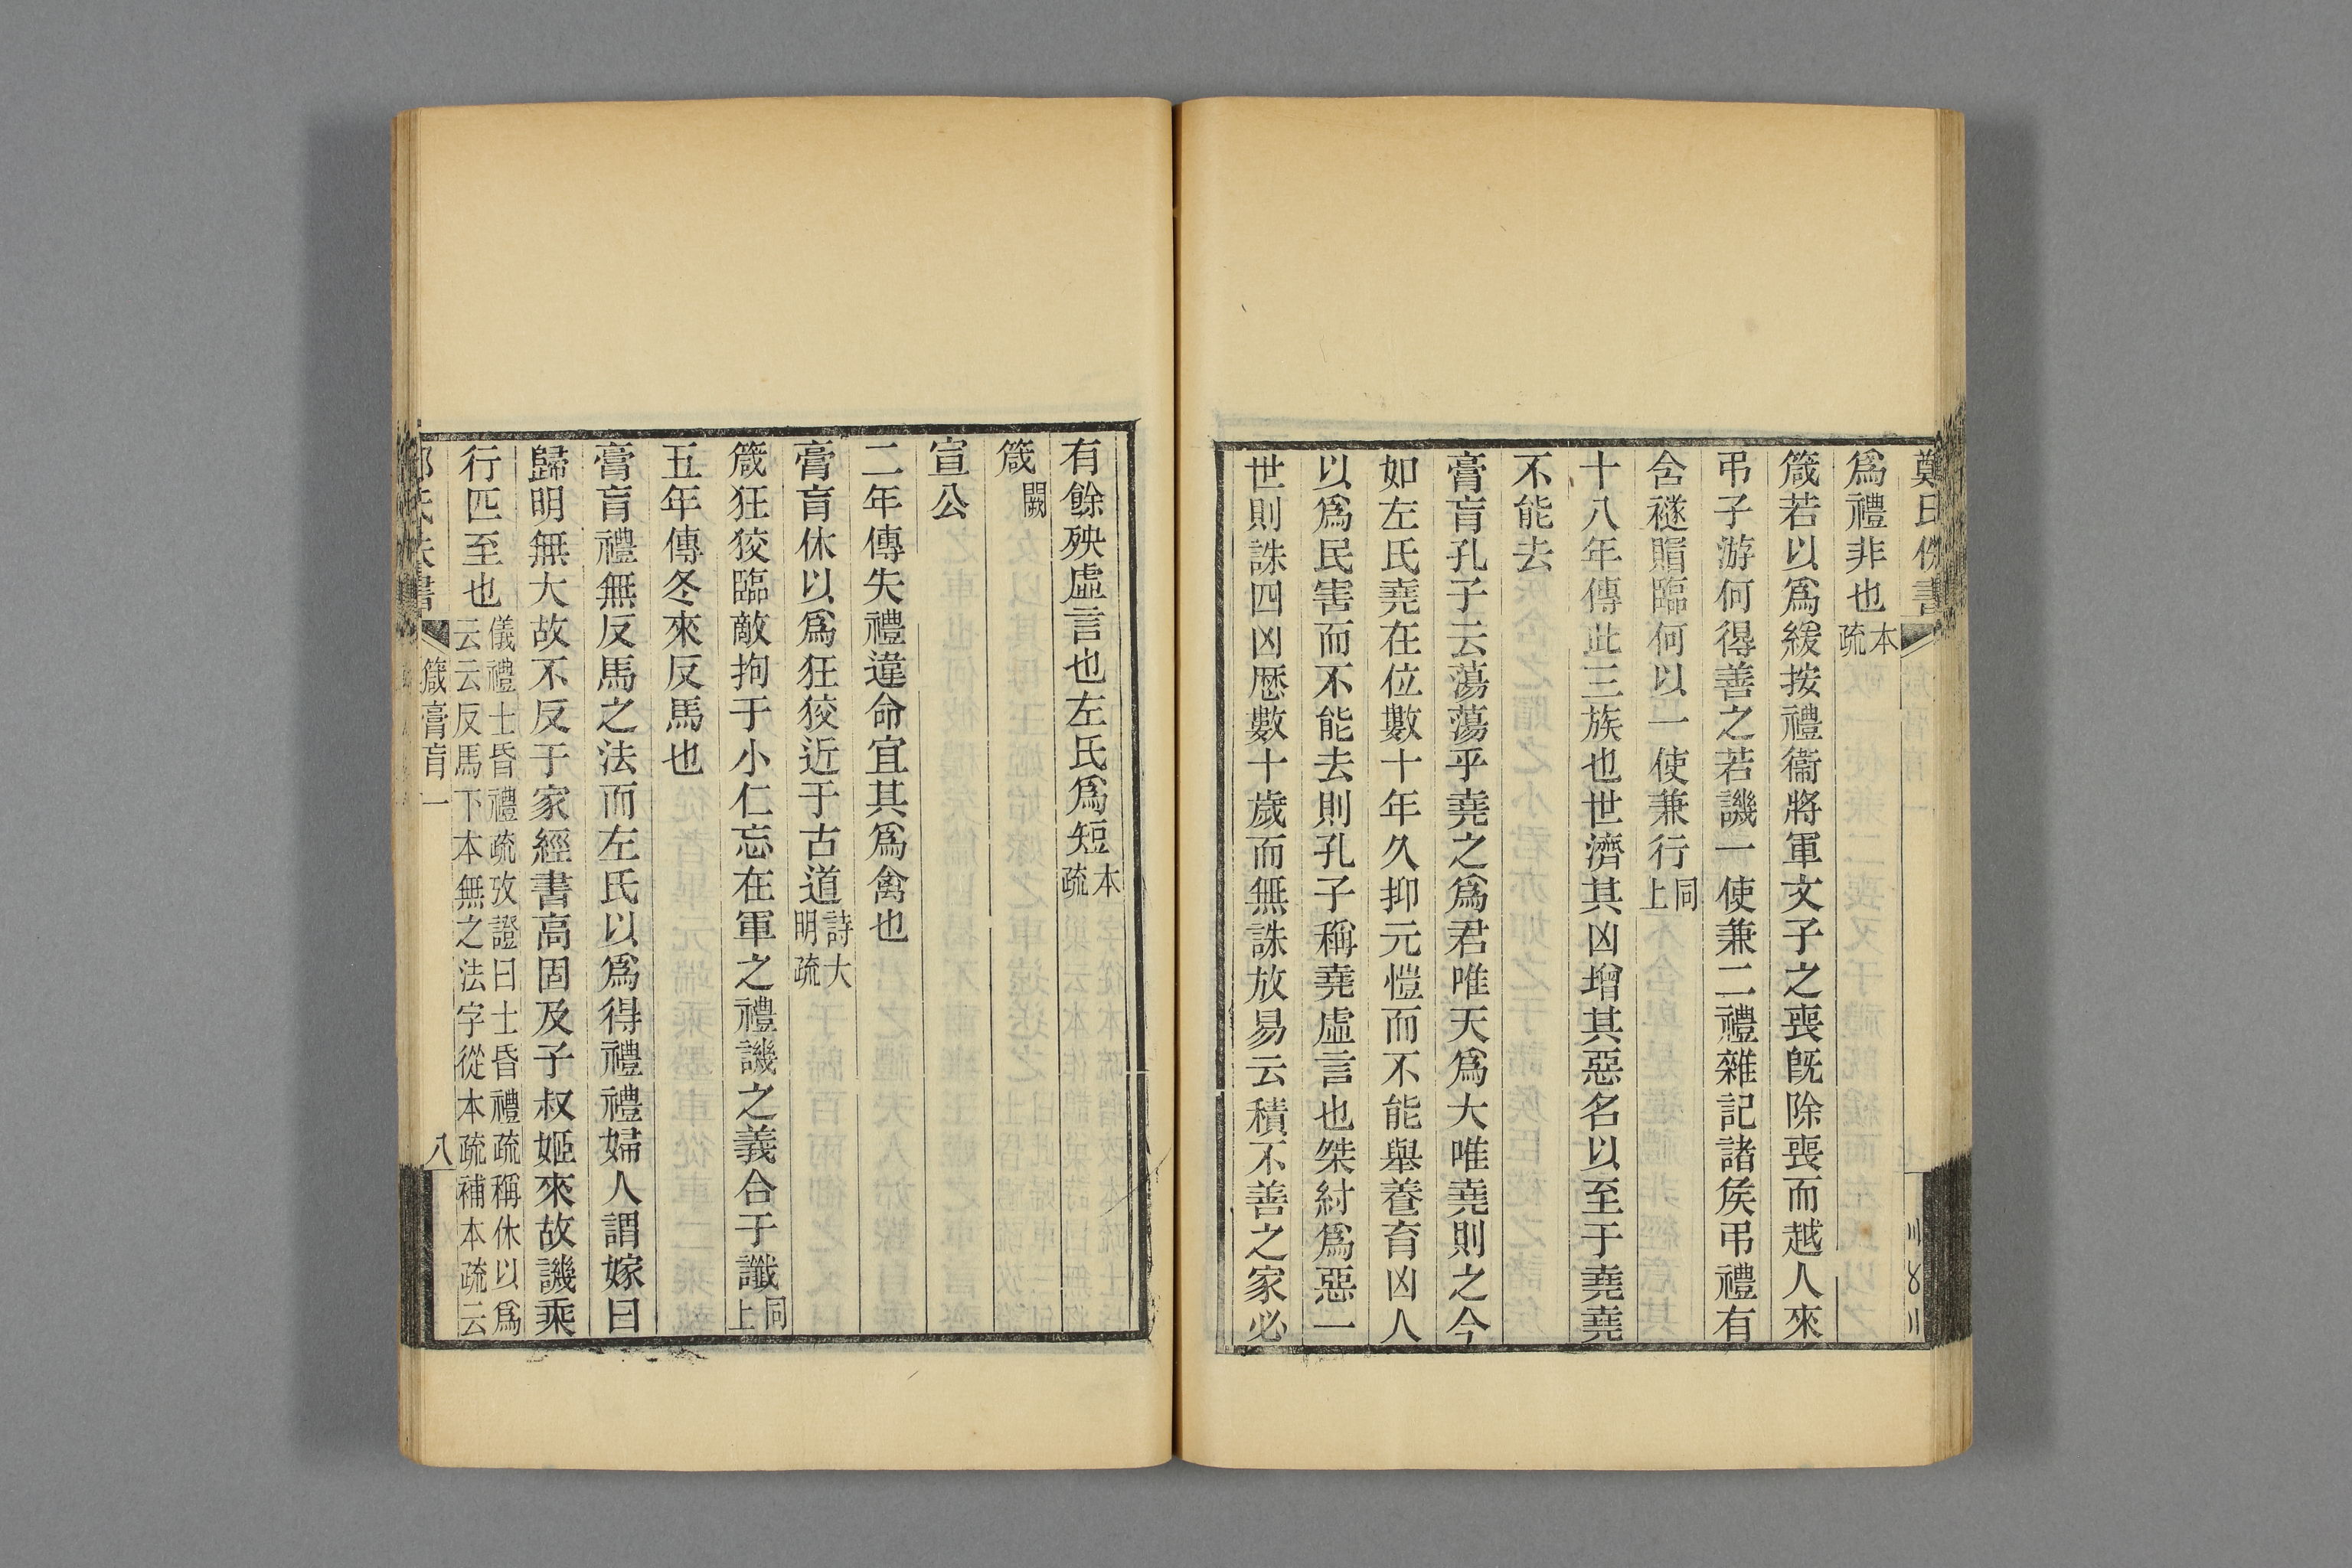 鄭氏佚書
爲禮非也本疏
箴若以爲緩按禮衞將軍文子之喪旣除喪而越人來
弔子游何得善之若譏一使兼二禮雜記諸矦弔禮有
含襚賵臨何以一使兼行同上
十八年傳此三族也世濟其凶增其惡名以至于堯堯
不能去
膏肓孔子云蕩蕩乎堯之爲君唯天爲大唯堯則之今
如左氏堯在位數十年久抑元愷而不能舉養育凶人
以爲民害而不能去則孔子稱堯虛言也桀紂爲惡一
世則誅四凶歷數十歲而無誅放易云積不善之家必
有餘殃虛言也左氏爲短本疏
箴闕
宣公
二年傳失禮違命宜其爲禽也
膏肓休以爲狂狡近于古道詩大明疏
箴狂狡臨敵拘于小仁忘在軍之禮譏之義合于讖同上
五年傳冬來反馬也
膏肓禮無反馬之法而左氏以爲得禮禮婦人謂嫁曰
歸明無大故不反于家經書高固及子叔姬來故譏乘
行匹至也儀禮士昏禮疏攷證曰士昏禮疏稱休以爲
云云反馬下本無之法字從本疏補本疏云
箴膏肓一
八